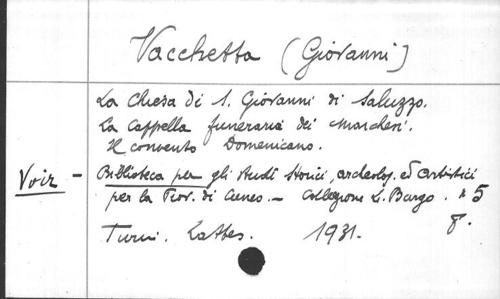 Vacchetta (Giovanni)
La Chiesa di S. Giovanni di Saluzzo.
La Cappella funeraria dei Marchesi.
Il convento Domenicano.
Voir - Biblioteca per gli Studi Storici, archeolog. ed Artistici
per la Prov. di Cuneo. - Collezione L. Burgo. n 5
Turin. Lattes. 1931. 8.